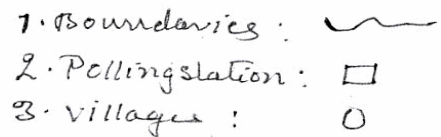 1. Boundaries :
2. Pollingstation :
3. Villages :